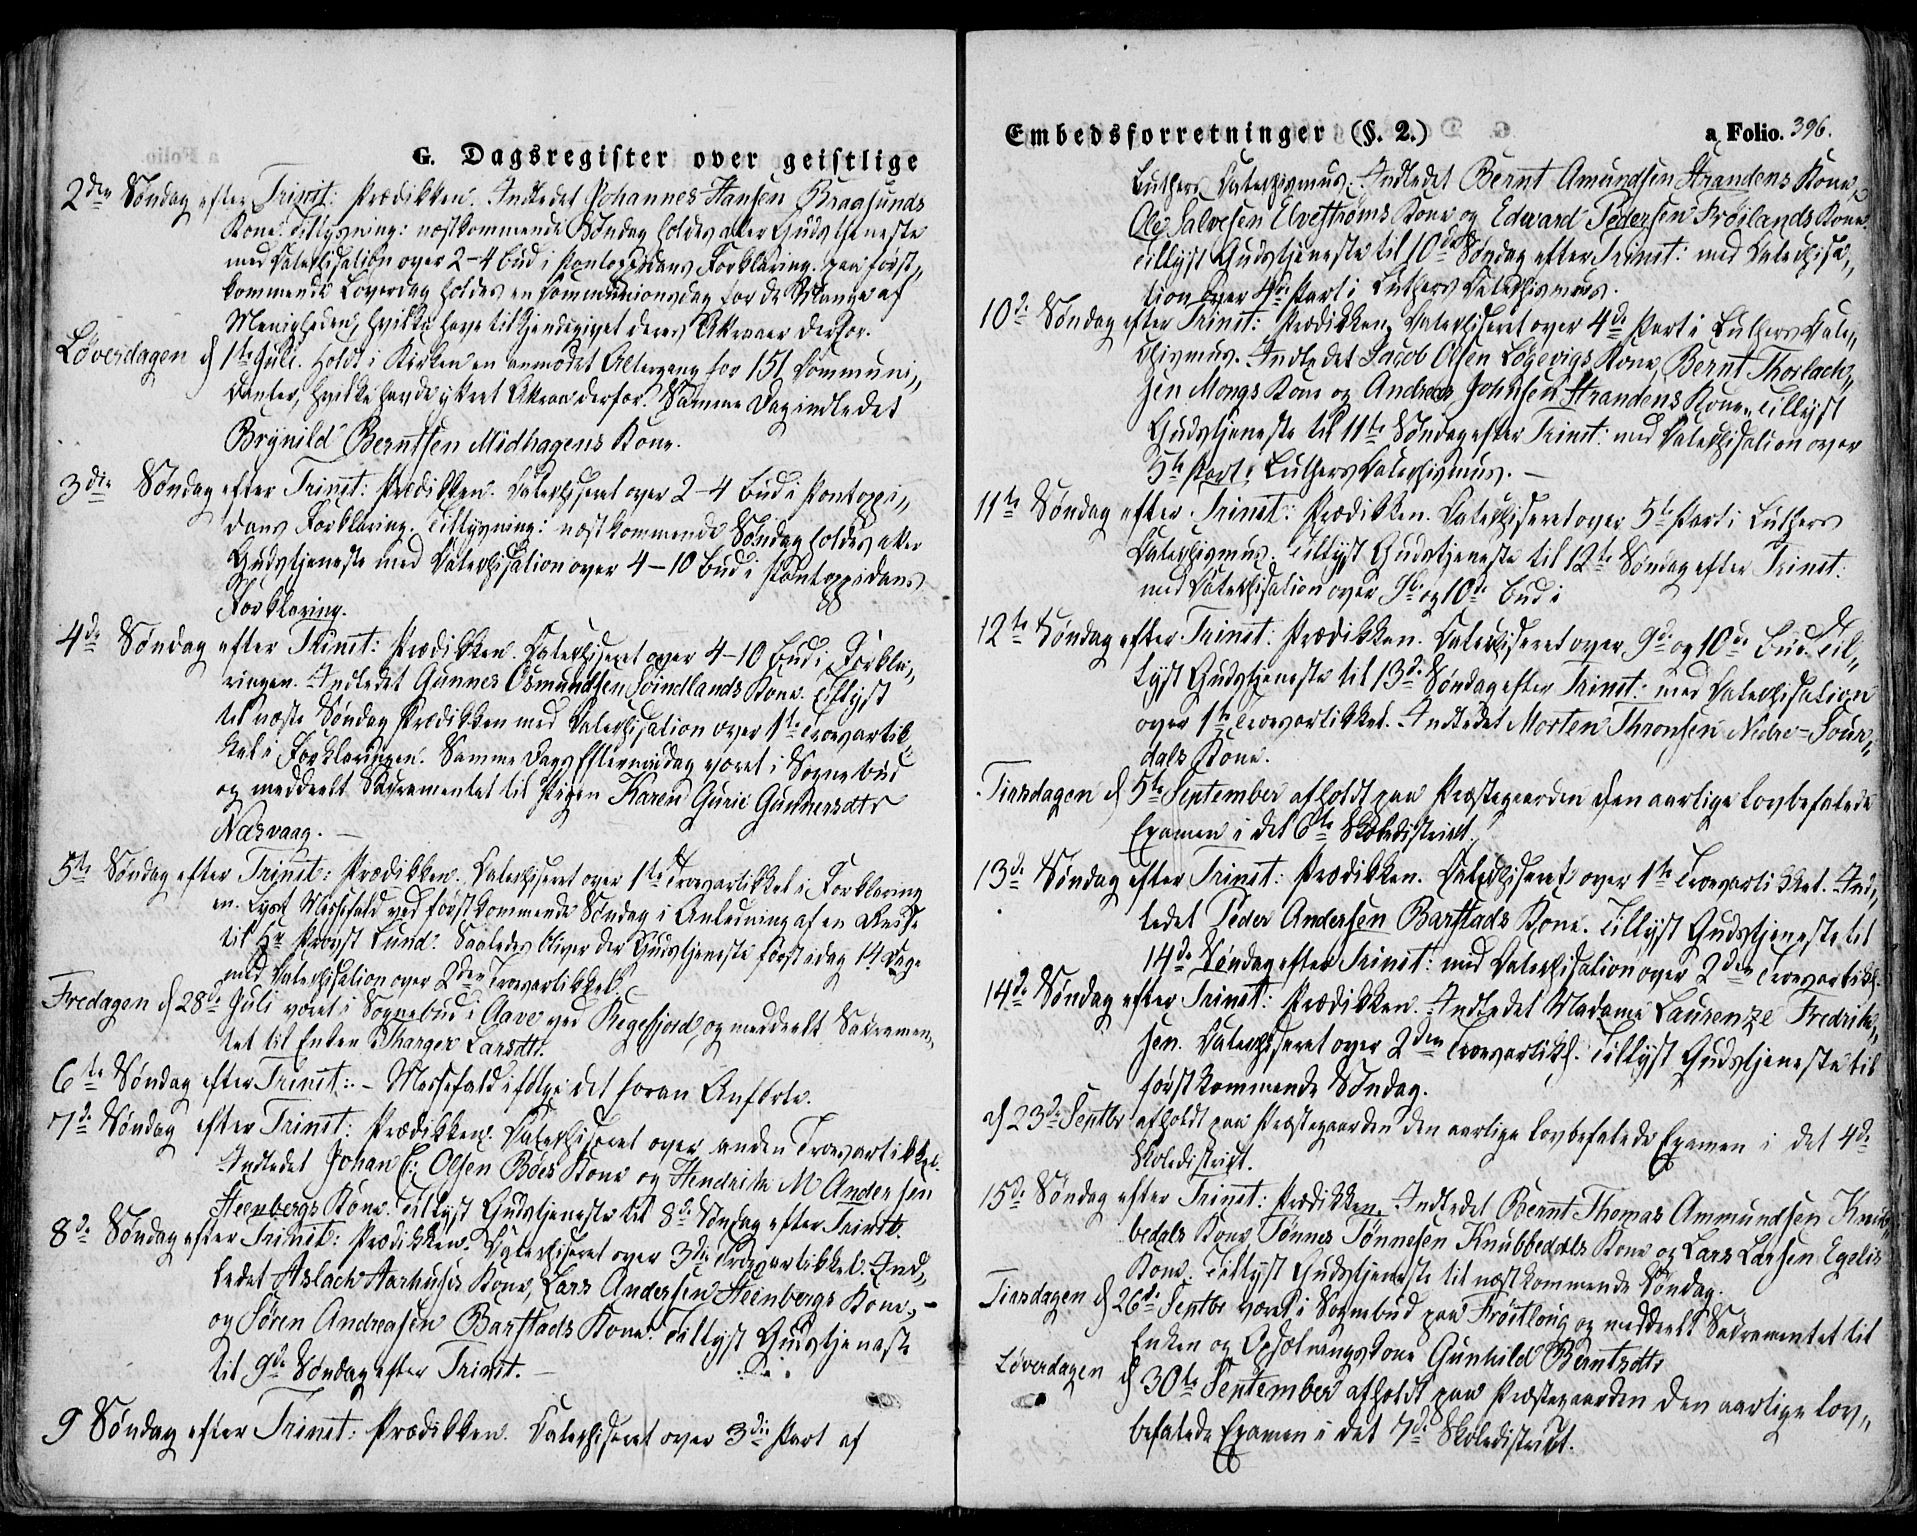 G. Dagsregister over geistlige
2den Søndag efter Trinit: Prædikken. Indledet Johannes Hansen Braasunds
Kone. Tillysning: næstkommende Søndag holdes atter Gudstjeneste
med Catechisation over 2-4 Bud i Pontoppidans Forklaring. paa først„
kommende Løverdag holdes en Communionsdag for de Mange af
Menigheden, hvilke have tilkjendegivet deres Attraaer derfor.
Løverdagen d 1ste Juli. Holdt i Kirken en anmodet Altergang for 151 Communi„
canter, hvilke havde yttret Attraa derfor. Samme Dag indledet
Brynild Berntsen Midhagens Kone.
3die Søndag efter Trinit: Prædikken. Catechiseret over 2-4 Bud i Pontoppi„
dans Forklaring. Tillysning: næstkommende Søndag holdes atter
Gudstjeneste med Catechisation over 4-10 Bud i Pontoppidans
Forklaring.
4de Søndag efter Trinit: Prædikken. Catechiseret over 4-10 Bud i Forkla„
ringen. Indledet Gunnes Osmundsen Søindlands Kone. Tillyst
til næste Søndag Prædikken med Catechisation over 1ste Troesartik„
kel i Forklaringen. Samme Dags Eftermiddag været i Sognebud
og meddeelt Sacramentet til Pigen Karen Gurie Gunnersdtr
Nærvaag. —
5te Søndag efter Trinit: Prædikken. Catechiseret over 1ste Troesartikkel i Forklaring
en. Lyst Messefald ved førstkommende Søndag i Anledning af en Reise
til Hr Provst Lund. Saaledes bliver der Gudstjeneste først idag 14 Dage
med Catechisation over 2den Troesartikkel
Fredagen d 28de Juli været i Sognebud i Aave ved Regefjord, og meddeelt Sacramen„
tet til Enken Tharger Larsdtr.
6te Søndag efter Trinit: - Messefald ifølge det foran Anførte.
7de Søndag efter Trinit: Prædikken. Catechiseret over anden Troesartikkel.
Indledet Johan C: Olsen Böes Kone og Hendrik M Andersen
Steenbergs Kone. Tillyst Gudstjeneste til 8de Søndag efter Trinit.
8de Søndag efter Trinit: Prædikken. Catechiseret over 3die Troesartikkel. Ind„
ledet Aslach Aarhuses Kone, Lars Andersen Steenbergs Kone, -
og Søren Andreasen Barstads Kone. Tillyst Gudstjeneste
til 9de Søndag efter Trinit. —
9 Søndag efter Trinit: Prædikken. Catechiseret over 3die Part af
Embedsforretninger (§. 2.)
a Folio. 396.
Luthers Catechismus. Indledet Bernt Amundsen Strandens Kone,
Ole Salvesen Elvestrøms Kone og Edvard Pedersen Frøilands Kone.
Tillyst Gudstjeneste til 10de Søndag efter Trinit: med Catechisa„
tion over 4de Part i Luthers Catechismus.
10de Søndag efter Trinit: Prædikken. Catechiseret over 4de Part i Luthers Cate„
chismus. Indledet Jacob Olsen Løgevigs Kone, Bernt Thorlach„
sen Mongs Kone og Andreas Johnsen Strandens Kone. Tillyst
Gudstjeneste til 11te Søndag efter Trinit: med Catechisation over
5te Part i Luthers Catechismus. —
11te Søndag efter Trinit: Prædikken. Catechiseret over 5te Part i Luthers
Catechismus. Tillyst Gudstjeneste til 12te Søndag efter Trinit:
med Catechisation over 9de og 10de Bud i
12te Søndag efter Trinit: Prædikken. Catechiseret over 9de og 10de Bud. Til„
lyst Gudstjeneste til 13de Søndag efter Trinit: med Catechisation
over 1ste Troesartikkel. Indledet Morten Thronsen Nedre-Sour„
dals Kone.
Tirsdagen d 5te September afholdt paa Præstegaarden den aarlige lovbefalede
Examen i det 6te Skoledistrict.
13de Søndag efter Trinit: Prædikken. Catechiseret over 1ste Troesartikkel. Ind„
ledet Peder Andersen Barstads Kone. Tillyst Gudstjeneste til
14de Søndag efter Trinit: med Catechisation over 2den Troesartikkl.
14de Søndag efter Trinit: Prædikken. Indledet Madame Laurenze Fredrik„
sen. Catechiseret over 2den Troesartikl. Tillyst Gudstjeneste til
førstkommende Søndag.
d 23de Septbr afholdt paa Præstegaarden den aarlige lovbefalede Examen i det 4de
Skoledistrict.
15de Søndag efter Trinit: Prædikken. Indledet Bernt Thomas Ammundsen Knub„
bedals Kone, Tønnes Tønnesen Knubbedals Kone og Lars Larsen Egelis
Kone. Tillyst Gudstjeneste til næstkommende Søndag.
Tirsdagen d 26de Septbr været i Sognebud paa Frøitlong og meddeelt Sacramentet til
Enken og Opsætningskone Gunhild Berntsdtr
Løverdagen d 30te September afholdt paa Præstegaarden den aarlige lov„
befalede Examen i det 7de Skoledistrict.